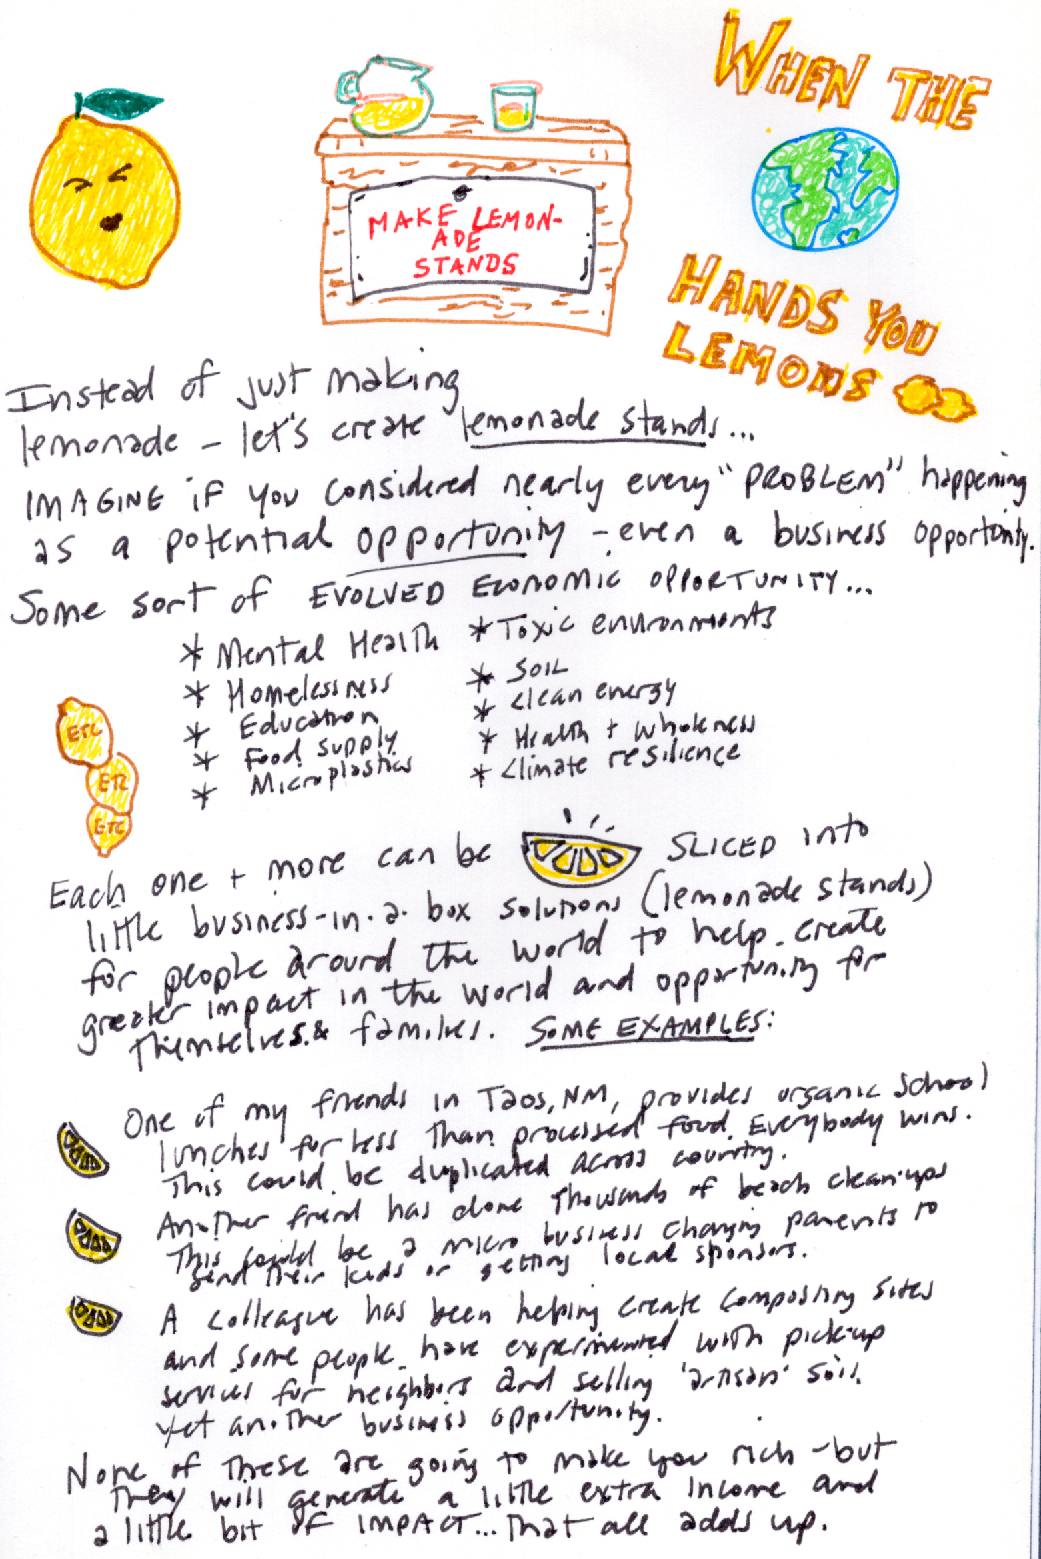 WHEN THE
HANDS YOU
LEMONS
MAKE LEMON-
ADE
STANDS
Instead of just making
lemonade – let's create lemonade stands...
IMAGINE if you considered nearly every "PROBLEM" happening
as a potential opportunity – even a business opportunity.
Some sort of EVOLVED ECONOMIC OPPORTUNITY...
* Mental Health
* Homelessness
* Education
* Food supply
* Microplastics
* Toxic environments
* SOIL
* clean energy
* Health + wholeness
* Climate resilience
ETC
ETC
ETC
Each one + more can be SLICED into
little business-in-a-box solutions (lemonade stands)
for people around the world to help create
greater impact in the world and opportunity for
themselves & families. SOME EXAMPLES:
One of my friends in Taos, NM, provides organic school
lunches for less than processed food. Everybody wins.
This could be duplicated across country.
Another friend has done thousands of beach clean-ups
This could be a micro business charging parents to
send their kids or getting local sponsors.
A colleague has been helping create composting sites
and some people have experimented with pick-up
services for neighbors and selling 'artisan' soil.
Yet another business opportunity.
None of these are going to make you rich – but
they will generate a little extra income and
a little bit of IMPACT... That all adds up.